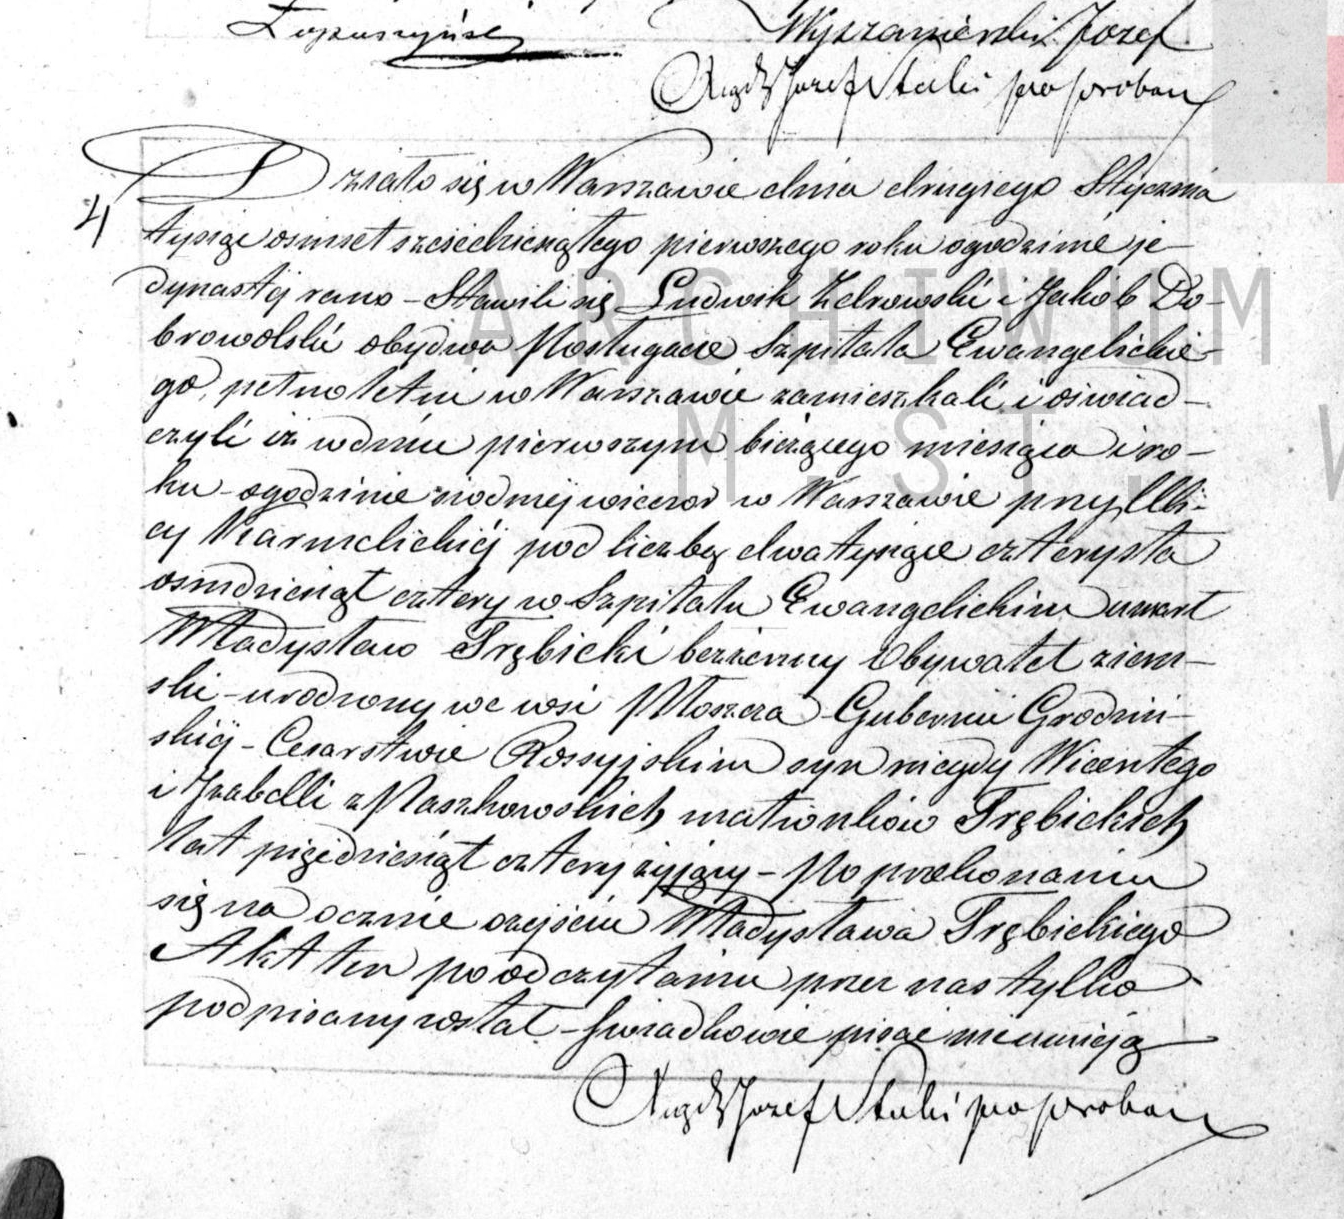 Wyszamierski Józef
Xiądz Józef Stecki pro probosz
4
Działo się w Warszawie dnia drugiego Stycznia
tysiąc ośmset sześćdziesiątego pierwszego roku o godzinie je-
dynastej rano - Stawili się Ludwik Zdrowski i Jakób Do-
browolski obydwa Posługacze Szpitala Ewangelickie-
go, pełnoletni w Warszawie zamieszkali i oświad-
czyli iż w dniu pierwszym bieżącego miesiąca i ro-
ku - o godzinie siódmej wieczór w Warszawie przy Uli-
cy Karmelickiéj pod liczbą dwa tysiące czterysta
ośmdziesiąt cztery w Szpitalu Ewangelickim umarł
Władysław Trębicki bezżenny Obywatel ziem-
ski - urodzony we wsi Płoszcza - Gubernii Grodzień-
skiéj - Cesarstwie Rossyjskim syn niegdy Wicentego
i Izabelli z Paszkowskich małżonków Trębickich
lat pięćdziesiąt cztery żyjący - Po przekonaniu
się na ocznie o zejściu Władysława Trębickiego
Akt ten po odczytaniu przez nas tylko
podpisany został - Świadkowie pisać nieumieją
ARCHIWUM
M. ST. W